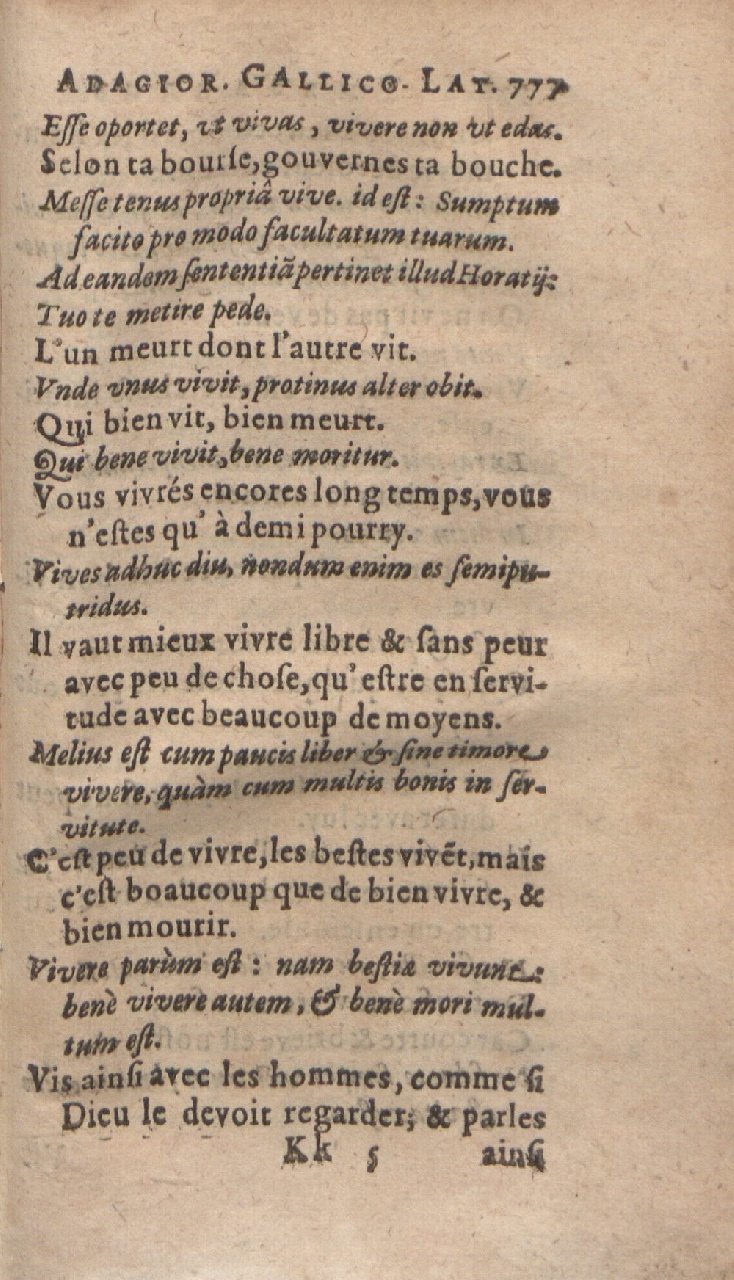 ADAGIOR. GALLICO- LAT. 777
Esse oportet, vt vivas, vivere non vt edas.
Selon ta bourse, gouvernes ta bouche.
Messe tenus propriâ vive. id est: Sumptum
facito pro modo facultatum tuarum.
Ad eandem sententiã pertinet illud Horatij:
Tuo te metire pede.
L'un meurt dont l'autre vit.
Vnde vnus vivit, protinus alter obit.
Qui bien vit, bien meurt.
Qui bene vivit, bene moritur.
Vous vivrés encores long temps, vous
n'estes qu' à demi pourry.
Vives adhuc diu, nondum enim es semipu-
tridus.
Il vaut mieux vivre libre & sans peur
avec peu de chose, qu' estre en servi-
tude avec beaucoup de moyens.
Melius est cum paucis liber & sine timore
vivere, quàm cum multis bonis in ser-
vitute.
C'est peu de vivre, les bestes vivẽt, mais
c'est boaucoup que de bien vivre, &
bien mourir.
Vivere parùm est : nam bestiæ vivunt :
benè vivere autem, & benè mori mul-
tum est.
Vis ainsi avec les hommes, comme si
Dieu le devoit regarder; & parles
Kk 5 ainsi